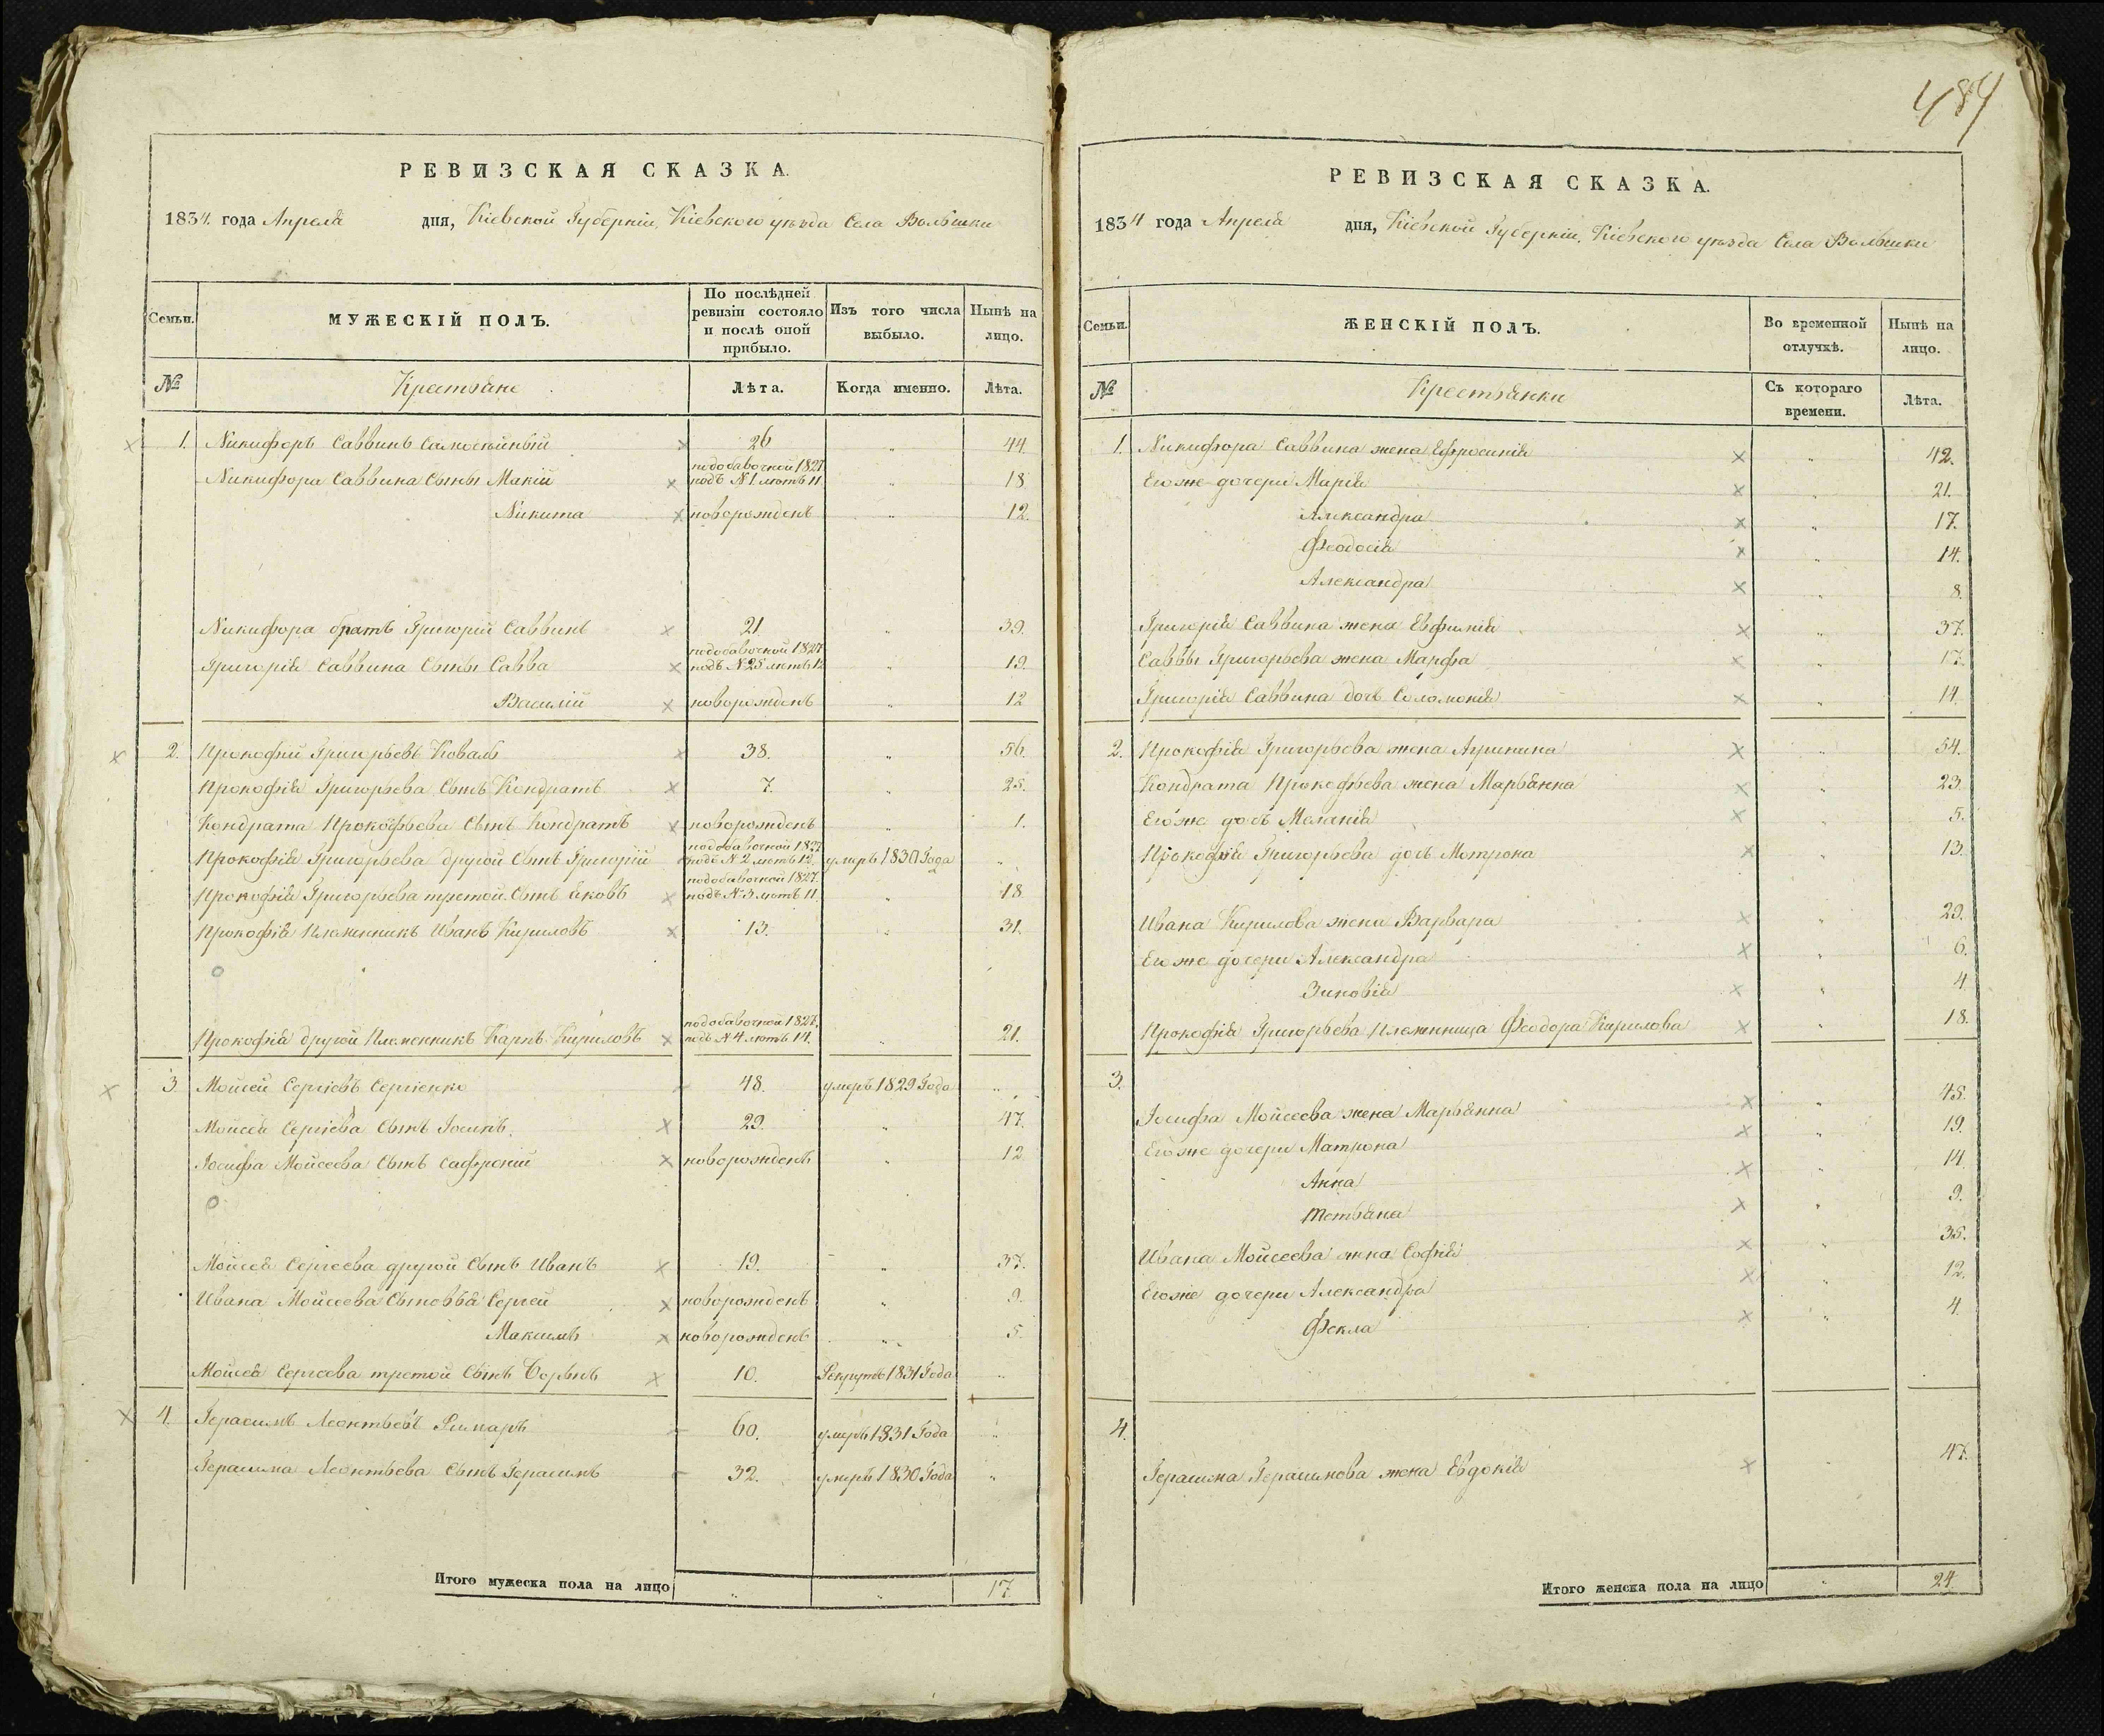 РЕВИЗСКАЯ СКАЗКА.
1834. года Апреля дня, Кіевской Губерніи, Кіевскаго уѣзда Села
Семьи. МУЖЕСКІЙ ПОЛЪ. По послѣдней ревизіи состояло и послѣ оной прибыло. Изъ того числа выбыло. Нынѣ на лицо.
№ Крестьяне Лѣта. Когда именно. Лѣта.
1. Никифоръ Саввинъ 26 „ 44.
подобавочной 1827
Никифора Саввина Сыны Мокій подъ №1 лѣтъ 11 „ 18
Никита новорожденъ „ 12.
Никифора братъ Григорій Саввинъ 21. „ 39.
подобавочной 1827
Григорія Саввина Сыны Савва подъ №25 лѣтъ 12 „ 19.
Василій новорожденъ „ 12
2. Прокофій Григорьевъ Коваль 38. „ 56.
Прокофія Григорьева Сынъ Кондратъ 7. „ 25.
Кондрата Прокофьева Сынъ Кондратъ новорожденъ „ 1.
подобавочной 1827
Прокофія Григорьева другой Сынъ Григорій подъ №2 лѣтъ 12. умеръ 1830 Года „
подобавочной 1827.
Прокофія Григорьева третой Сынъ Яковъ подъ №3 лѣтъ 11. „ 18
Прокофія Племянникъ Иванъ Кириловъ 13. „ 31.
подобавочной 1827.
Прокофія другой Племенникъ Карпъ Кириловъ подъ №4 лѣтъ 14. „ 21.
3. Моисей Сергіевъ Сергіенко 48. умеръ 1829 Года „
Моисея Сергіева Сынъ Іосифъ. 29. „ 47.
Іосифа Мойсеева Сынъ новорожденъ „ 12
Мойсея Сергеева другой Сынъ Иванъ 19. „ 37.
Ивана Мойсеева Сыновья Сергей новорожденъ „ 9.
Максимъ новорожденъ „ 5.
Мойсея Сергеева третой Сынъ 10. Рекрутъ 1831 Года „
4. Герасимъ Леонтьевъ Римарь 60. умеръ 1831 Года „
Герасима Леонтьева Сынъ Герасимъ 32. умеръ 1830 Года „
Итого мужеска пола на лицо „ „ 17.
484
РЕВИЗСКАЯ СКАЗКА.
1834 года Апреля дня, Кіевской Губерніи, Кіевскаго уѣзда Села
Семьи. ЖЕНСКІЙ ПОЛЪ. Во временной отлучкѣ. Нынѣ на лицо.
№ Крестьянки Съ котораго времени. Лѣта.
1. Никифора Саввина жена Ефросинія „ 42.
Его же дочери Марія „ 21.
Александра „ 17.
Феодосія „ 14.
Александра „ 8.
Григорія Саввина жена Евфимія „ 37.
Саввы Григорьева жена Марфа „ 17.
Григорія Саввина дочь Соломонія „ 14.
2. Прокофія Григорьева жена Агрипина „ 54.
Кондрата Прокофьева жена Марьянна „ 23.
Его же дочь Меланія „ 5.
Прокофія Григорьева дочь Мотрона „ 13.
Ивана Кирилова жена Варвара „ 29.
Его же дочери Александра „ 6.
Зиновія „ 4
Прокофія Григорьева Племянница Феодора Кирилова „ 18.
3.
Іосифа Мойсеева жена Марьянна „ 45.
Его же дочери Матрона „ 19.
Анна „ 14
Тетьяна „ 9.
Ивана Мойсеева жена Софія „ 35.
Его же дочери Александра „ 12.
Фекла „ 4.
4.
Герасима Герасимова жена Евдокія „ 47.
Итого женска пола на лицо „ 24